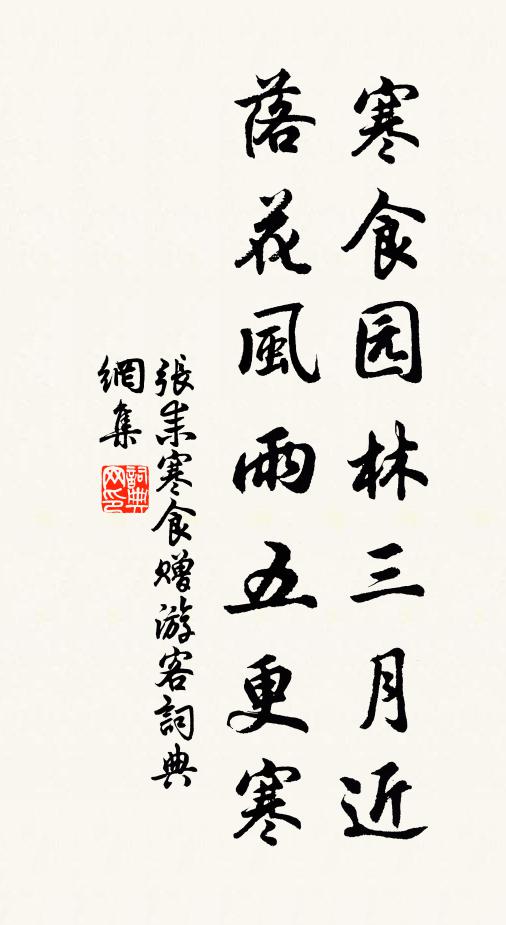 寒食园林三月近
落花風雨五更寒
張耒寒食赠游客詞典
網集
詞典
网印